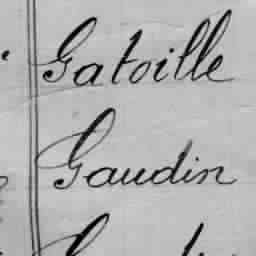 Gatoille
Gaudin